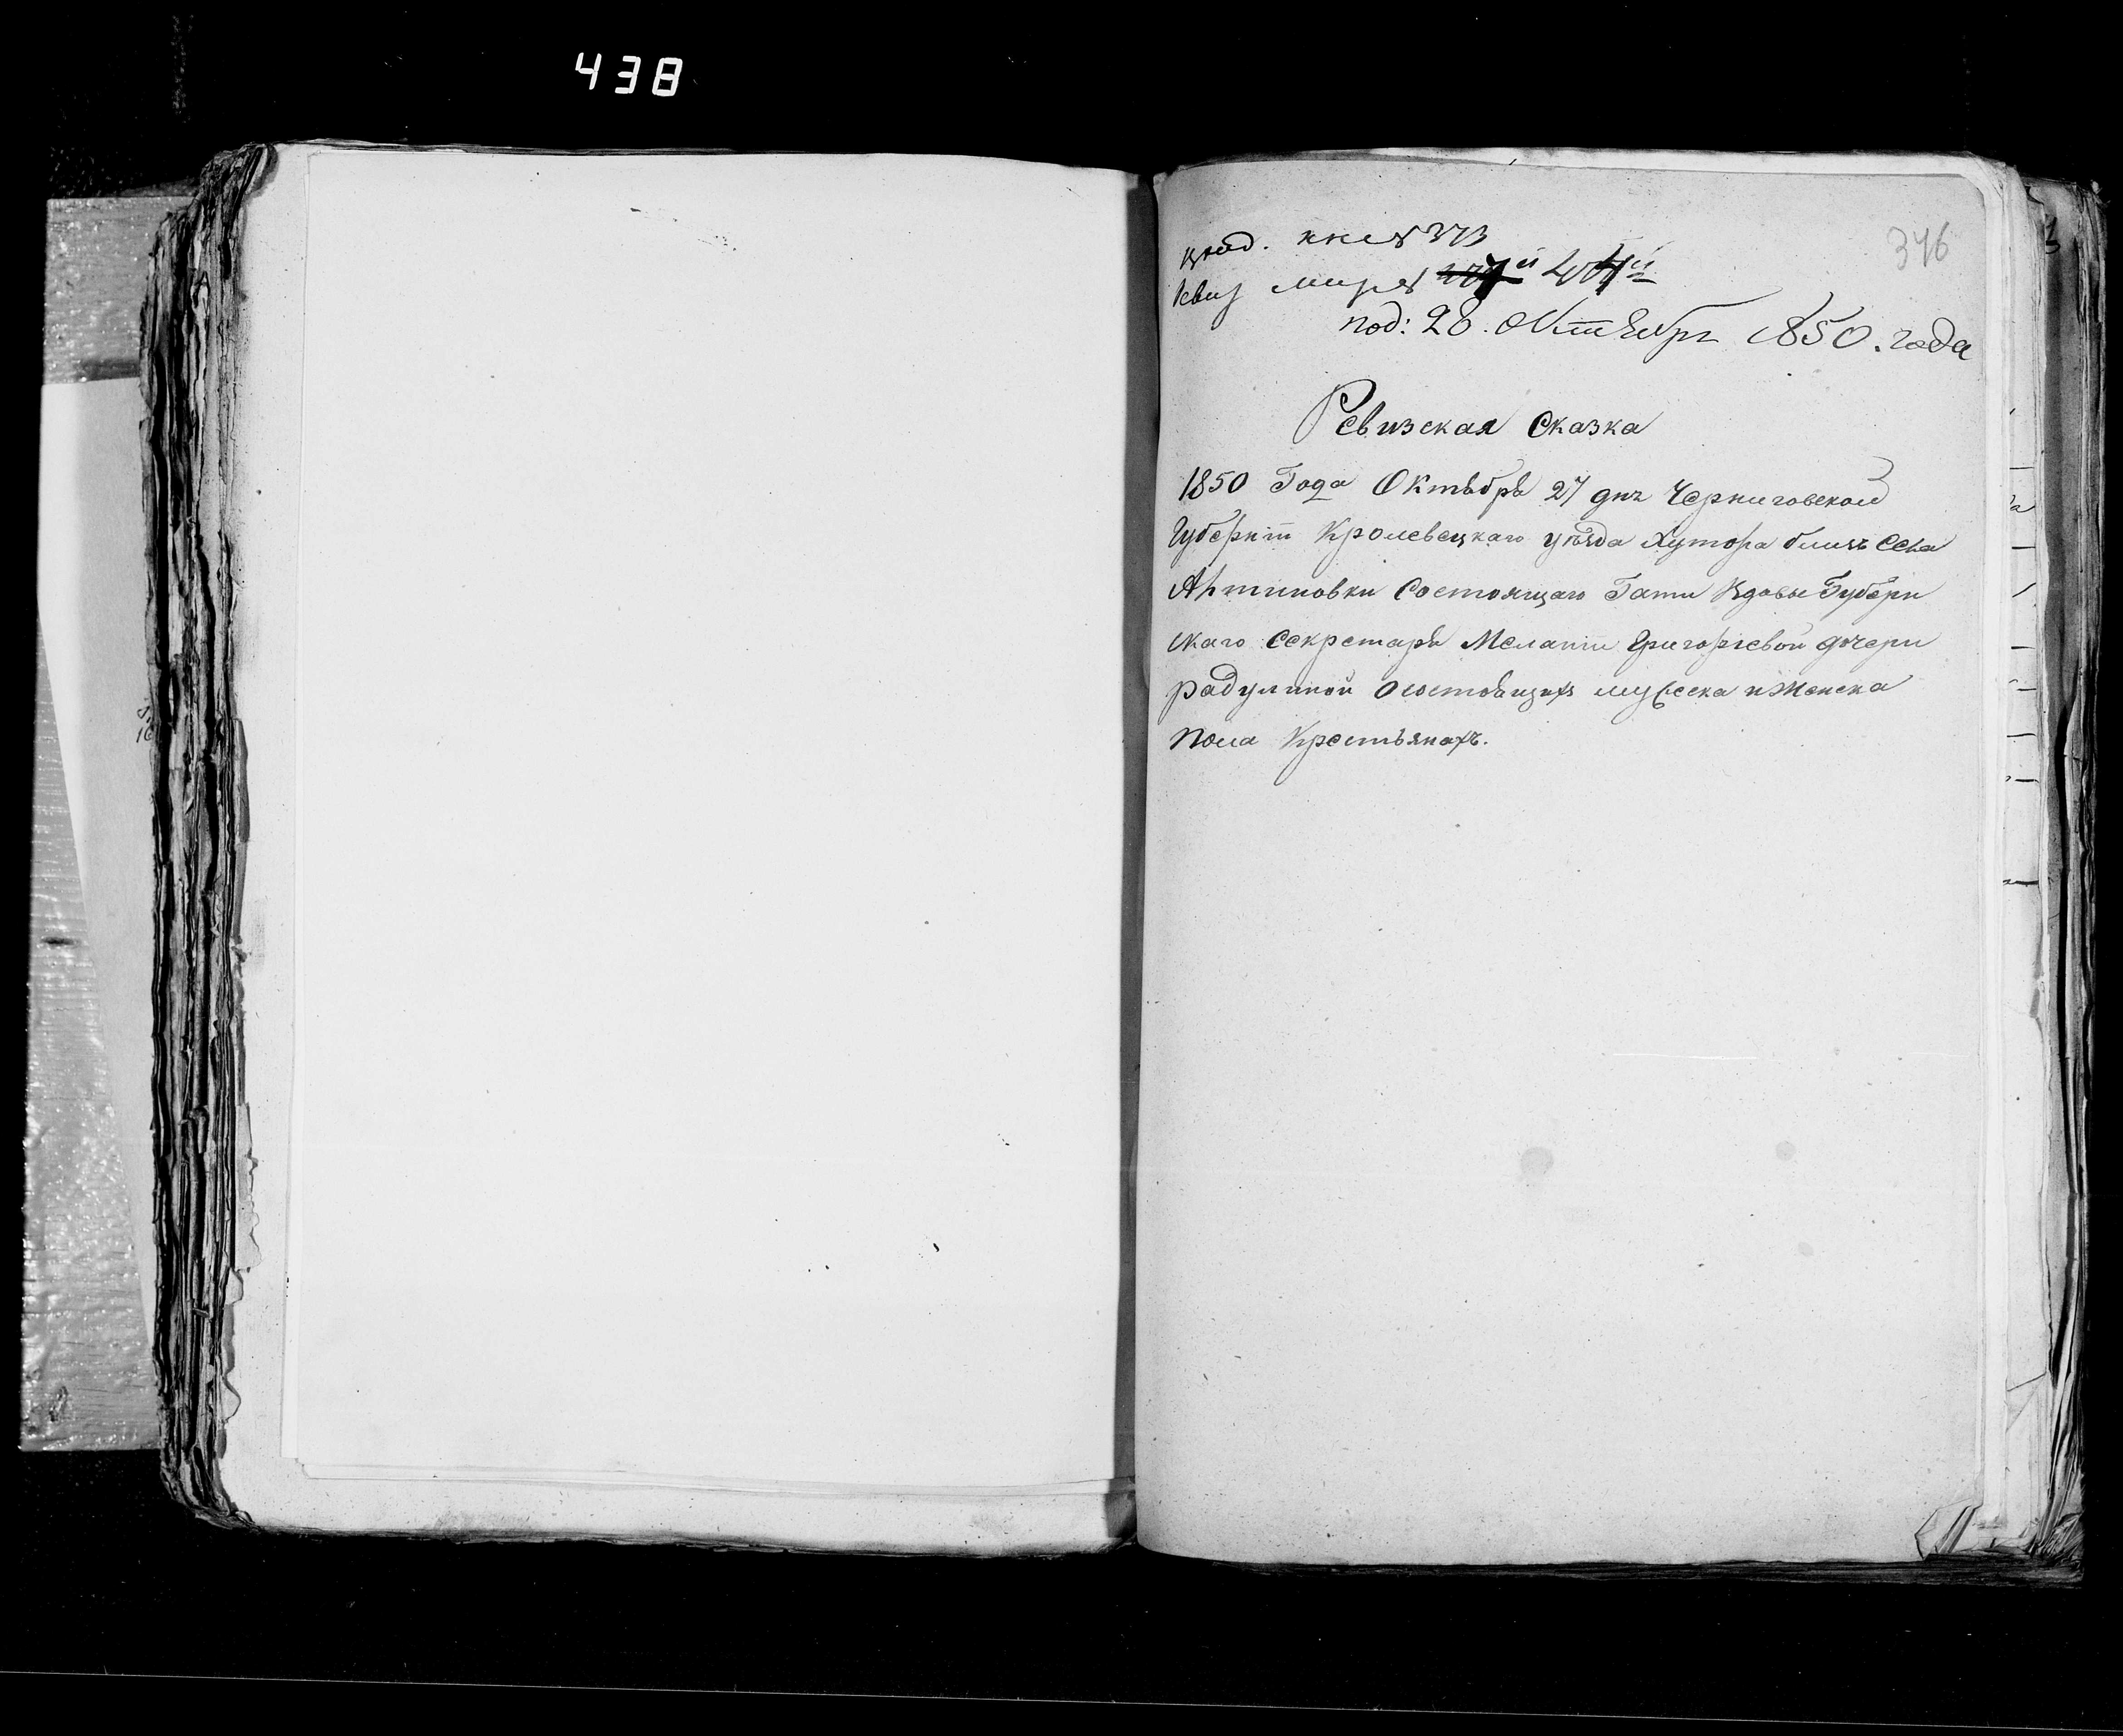 438
346
№ 373
под: 20. Октября 1850. года
Ревизская Сказка
1850 Года Октября 27 дня Черниговской
Губерніи Кролевецкаго уѣзда Хутора близъ Села
состоящаго Гати Вдовы Губерн
скаго Секретаря Меланіи Григорьевой дочери
Радулиной о состоящихъ мужеска и Женска
пола Крестьянахъ.